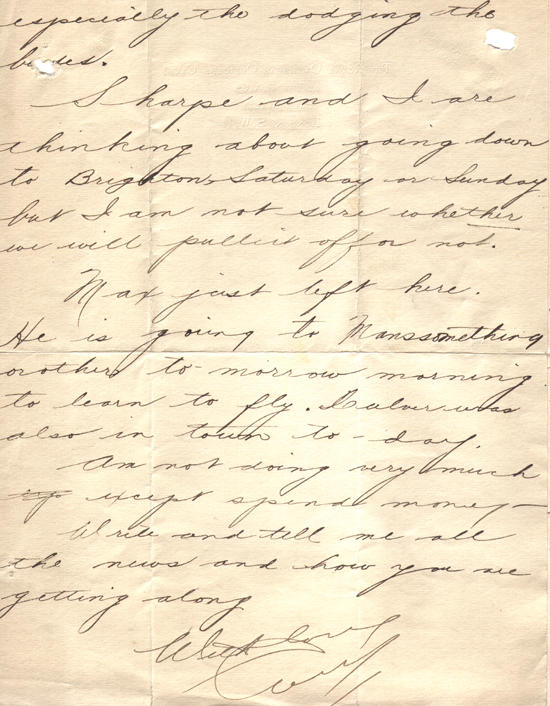 especially the dodging the
Sharpe and I are
thinking about going down
to Brighton, Saturday or Sunday
but I am not sure whether
we will pull it off or not.
Max just left here.
He is going to Manssomething
orother to-morrow morning
to learn to fly. was
also in town to-day.
Am not doing very much
except spend money—
Write and tell me all
the news and how you are
getting along
With love